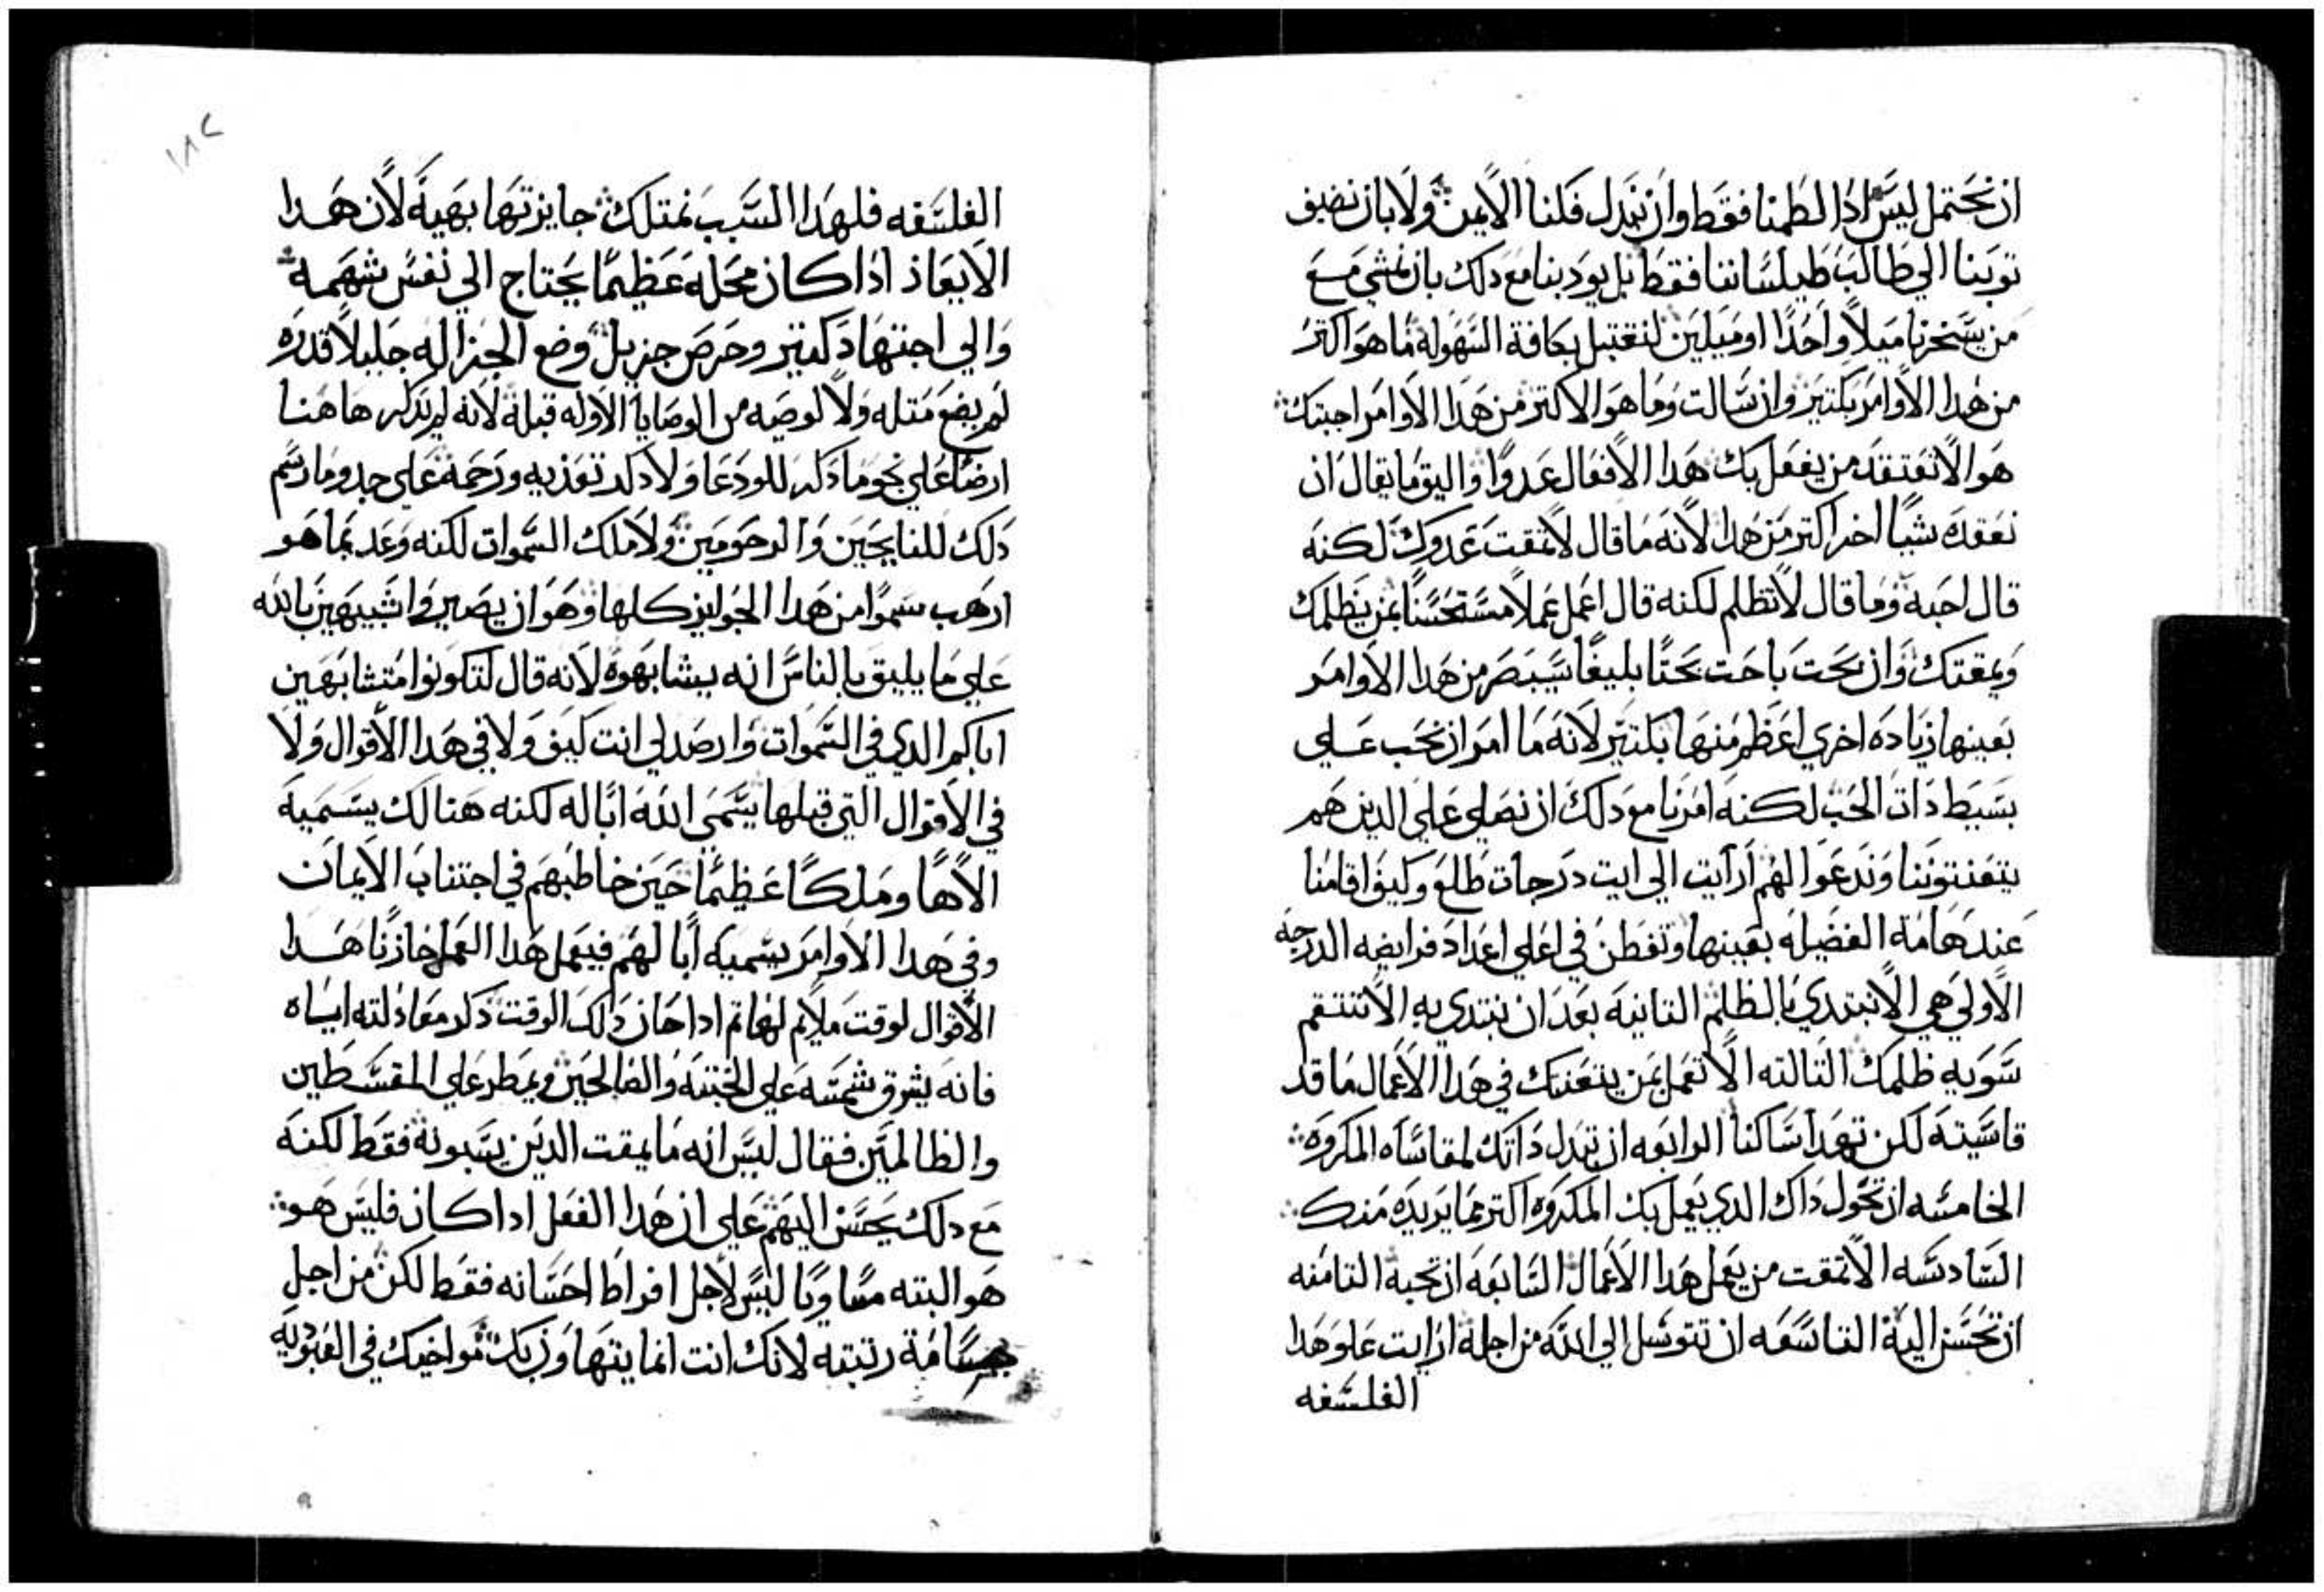 ان نحتمل ليس اذا لطمنا فقط وان نبدل فكنا الايمن ولا بان نضيف
توبنا الي طالب طيلساننا فقط بل يودبنا مع دلك بان نمشي مع
من يسخرنا ميلاً واحدًا او ميلين لنقتبل بكافة السهولة ما هو اكتر
من هدا الاوامر بكتير وان سالت وما هو الاكتر من هدا الاوامر اجبتك
هو الا تعتقد من يفعل بك هدا الافعال عدوًا واليق ما يقال ان
نعقده شيًا اخر اكتر من هدا لانه ما قال لا تمقت عدوك لكنه
قال احبه وما قال لا تظلم لكنه قال اعمل عملاً مستحسنًا بمن يظلمك
ويمقتك وان بحت باحت بحتًا بليغًا سيبصر من هدا الاوامر
بعينها زياده اخري اعظم منها بكتير لانه ما امر ان نحب علي
بسيط دات الحب لكنه امرنا مع دلك ان نصلي علي الدين هم
يتعنتوننا وندعوا لهم ارآيت الي ايت درجات طلع وكيف اقامنا
عند هامة الفضيله بعينها وتفطن في اعلي اعداد فرايضه الدرجه
الاولي هي الا نبتدي بالظلم التانيه بعد ان نبتدي به الا تنتقم
سويه ظلمك التالته الا تعمل بمن يتعنتك في هدا الاعمال ما قد
قاسيته لكن تهدا ساكنا الرابعه ان تبدل داتك لمقاساه المكروه
الخامسه ان تخول داك الدي يعمل بك المكروه اكتر مما يريده منك
السادسه الا تمقت من يعمل هدا الاعمال السابعه ان تحبه التامنه
ان تحسن اليه التاسعه ان تتوسل الي الله من اجله ارايت علو هدا
الفلسفه
١٨٢
الفلسفه فلهدا السبب نمتلك جايزتها بهيه لان هدا
الايعاز ادا كان محله عظيمًا يحتاج الي نفس شهمه
والي اجتهاد كتير وحرص جزيل وضع الجزا له جليلاً قدره
لم يضع متله ولا لوصيه من الوصايا الاوله قبله لانه لم يدكر هاهنا
ارضًا علي نحو ما دكر للودعا ولا دكر تعزيه ورحمه علي حدو ما رسم
دلك للنايحين والمرحومين ولا ملك السموات لكنه وعد بما هو
ارهب سموًا من هدا الجوايز كلها وهو ان يصيروا شبيهين بالله
علي ما يليق بالناس انه يشابهوه لانه قال لتكونوا متشابهين
اباكم الدي في السموات وارصد لي انت كيف ولا في هدا الاقوال ولا
في الاقوال التي قبلها يسمي الله ابًا له لكنه هنالك يسميه
الاهًا وملكًا عظيمًا حين خاطبهم في اجتناب الايمان
وفي هدا الاوامر يسميه ابًا لهم فيعمل هدا العمل خازنًا هدا
الاقوال لوقت ملايم لها تم ادا حان دالك الوقت دكر معادلته اياه
فانه يشرق شمسه علي الخبتنه والصالحين ويمطر علي المقسطين
والظالمين فقال ليس انه ما يمقت الدين يسبونه فقط لكنه
مع دلك يحسن اليهم علي ان هدا الفعل ادا كان فليس هو
هو البته مساويًا ليس لاجل افراط احسانه فقط لكن من اجل
جسامة رتبته لانك انت انما يتهاون بك مواخيك في العبوديه